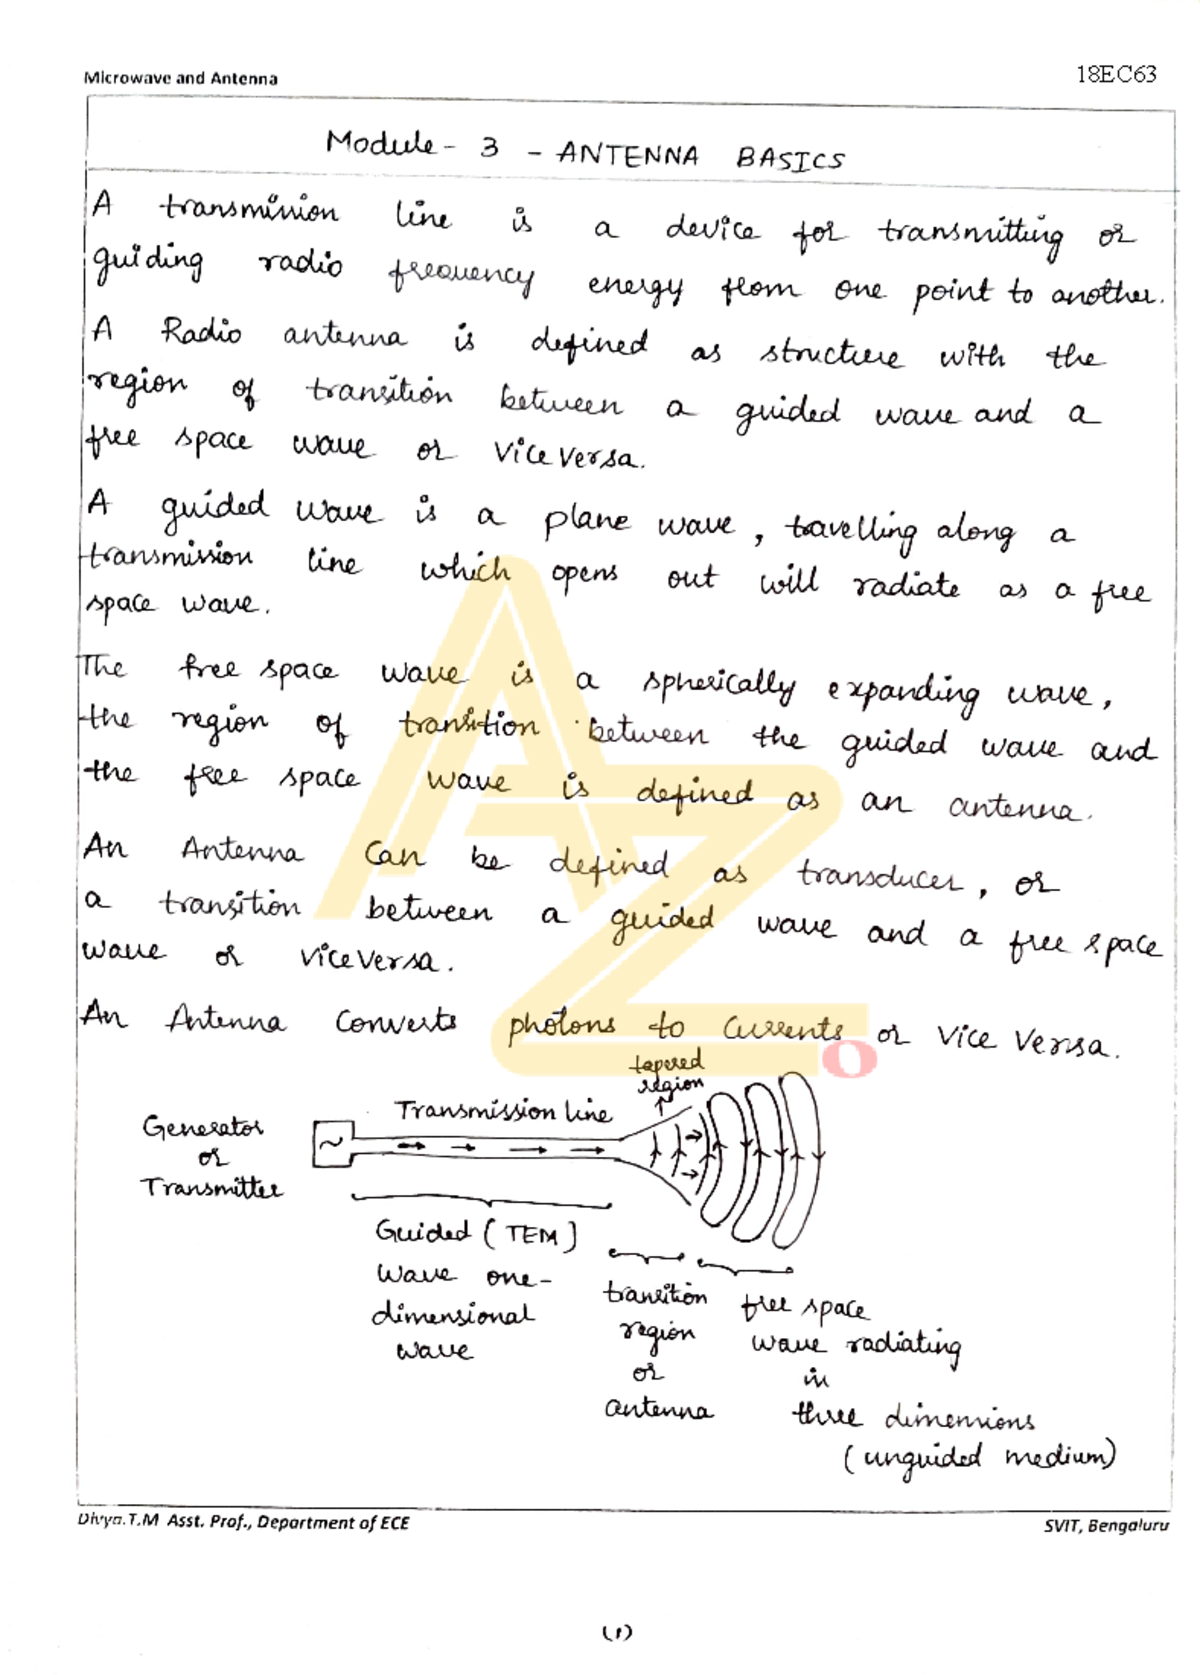 Microwave and Antenna
18EC63
Module - 3 - ANTENNA BASICS
A transmission line is a device for transmitting or
guiding radio frequency energy from one point to another.
A Radio antenna is defined as structure with the
region of transition between a guided wave and a
free space wave or Vice Versa.
A guided wave is a plane wave, travelling along a
transmission line which opens out will radiate as a free
space wave.
The free space wave is a spherically expanding wave,
the region of transition between the guided wave and
the free space wave is defined as an antenna.
An Antenna Can be defined as transducer, or
a transition between a guided wave and a free space
wave or Vice Versa.
An Antenna Converts photons to Currents or Vice Versa.
AZ
O
tapered
region
Transmission line
Generator
or
Transmitter
~
Guided (TEM)
Wave one-
dimensional
wave
transition
region
or
antenna
free space
wave radiating
in
three dimensions
(unguided medium)
Divya.T.M Asst. Prof., Department of ECE
SVIT, Bengaluru
(1)